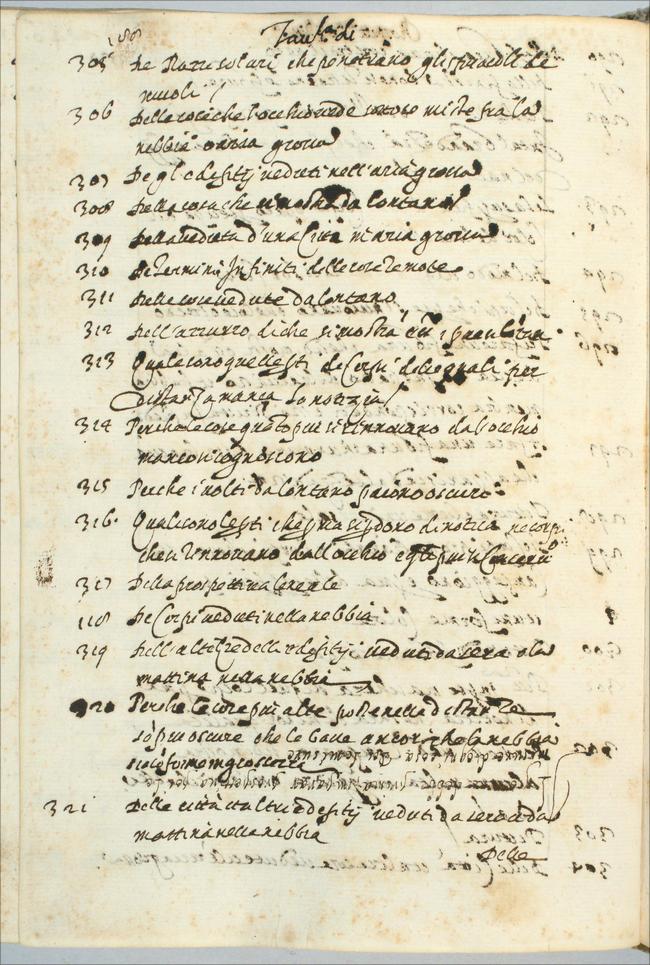 188
Tauola di
305 De Razzi solari che penetrano gli spiracoli de
nuuoli
306 Delle cose che l'occhio uede sotto se miste fra la
nebbia et aria grossa
307 De gli edifitij ueduti nell'aria grossa
308 Della cosa che si mostra da lontano
309 Della ueduta d'una Città in aria grossa
310 De termini Infiniti delle cose remote
311 Delle cose uedute da lontano
312 Dell'azzurro di che si mostra
313 Quale sono quelle parti de Corpi delle quali per
distanza manca la notizia
314 Perche le cose quanto piu si rimouano dal occhio
manco si cognoscono
315 Perche i uolti da lontano paiono oscuri
316 Quali sono le parti che prima si perdono di notitia ne corpi
che si remouano dall'occhio e quali piu si conseruano
317 Della prospettiua lineale
118 De Corpi ueduti nella nebbia
319 Dell'altezze delli edifitij ueduti da sera o la
mattina nella nebbia
320 Perche le cose piu alte poste nelle distanze
so piu oscure che le basse ancor che la nebbia
sia uniforme in grossezza
321 Delle città et altri edifitij ueduti da sera o da
mattina nella nebbia
Delle